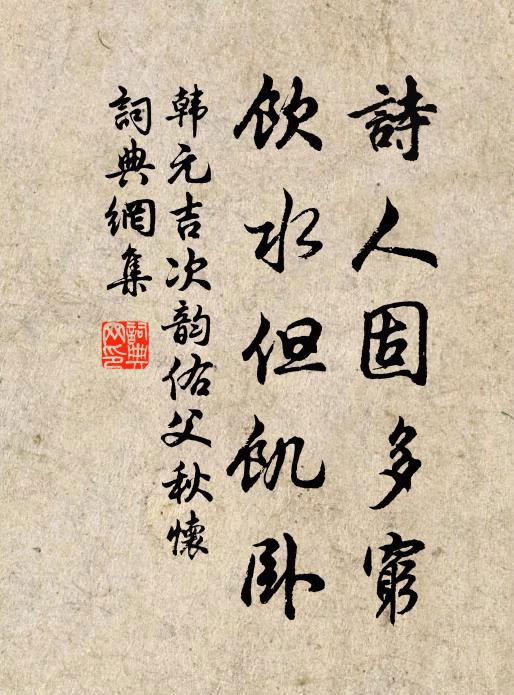 詩人固多窮
飲水但飢卧
韩元吉次韵佑父秋懷
詞典網集
詞典網印